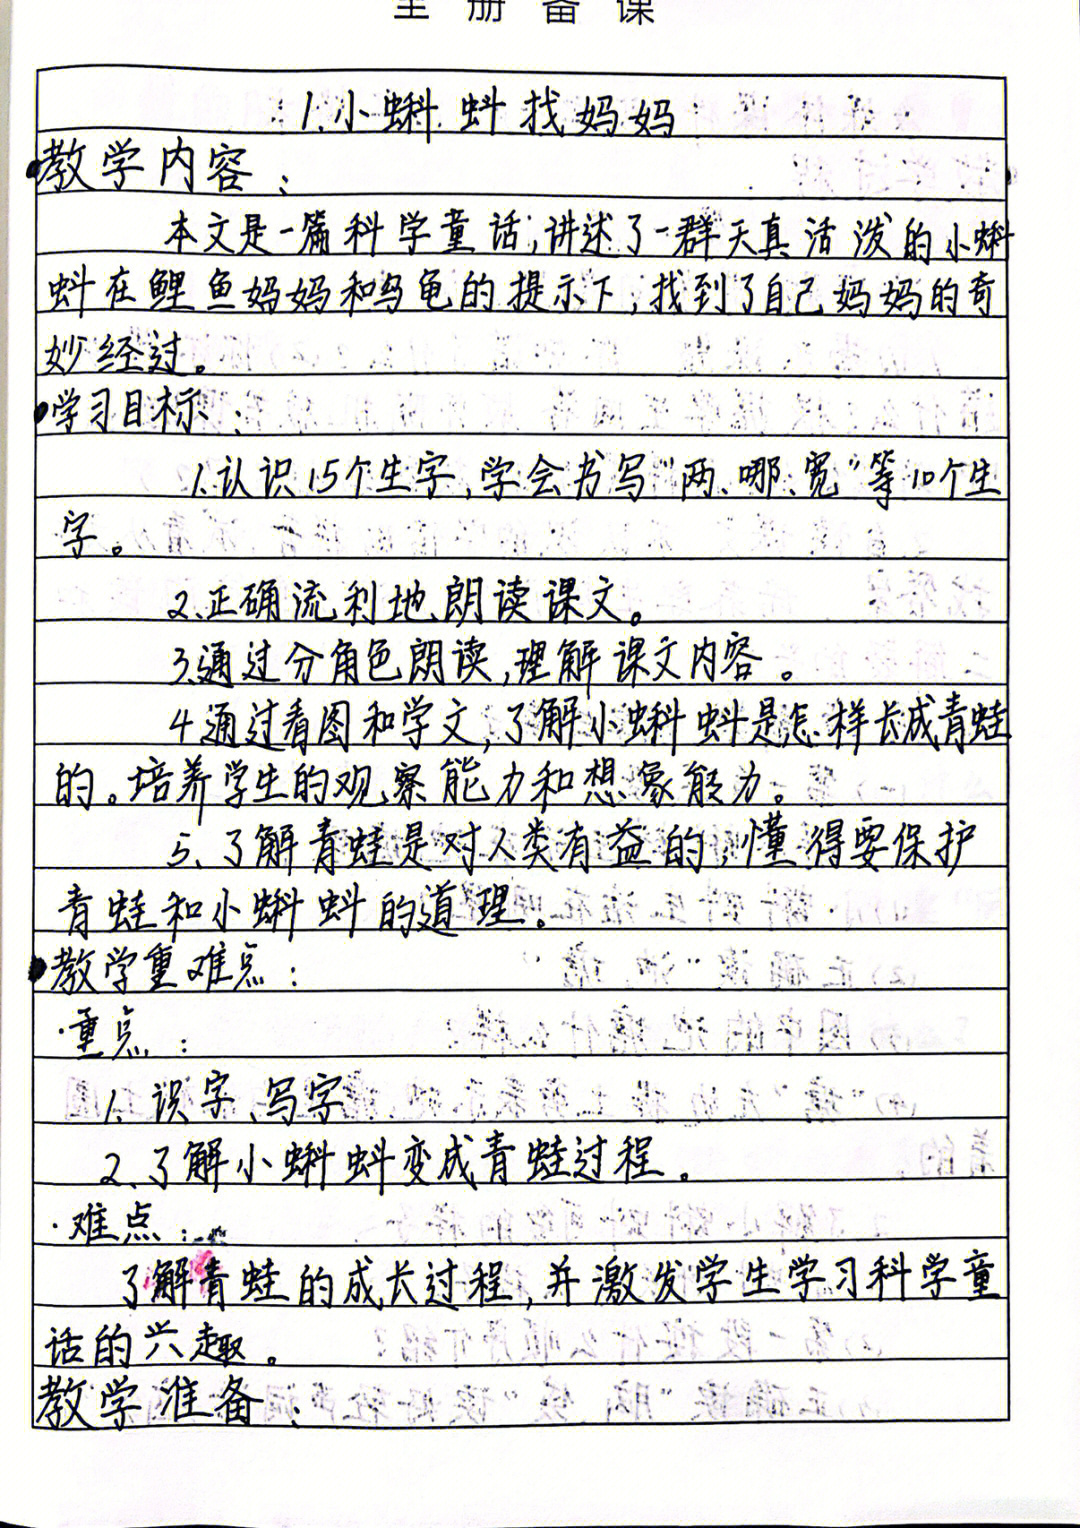 全册备课
1.小蝌蚪找妈妈
教学内容：
本文是一篇科学童话,讲述了一群天真活泼的小蝌
蚪在鲤鱼妈妈和乌龟的提示下,找到了自己妈妈的奇
妙经过。
学习目标：
1.认识15个生字,学会书写“两、哪、宽”等10个生
字。
2.正确流利地朗读课文。
3.通过分角色朗读,理解课文内容。
4.通过看图和学文,了解小蝌蚪是怎样长成青蛙
的。培养学生的观察能力和想象能力。
5.了解青蛙是对人类有益的,懂得要保护
青蛙和小蝌蚪的道理。
教学重难点：
·重点：
1.识字、写字
2.了解小蝌蚪变成青蛙过程。
·难点：
了解青蛙的成长过程,并激发学生学习科学童
话的兴趣。
教学准备：